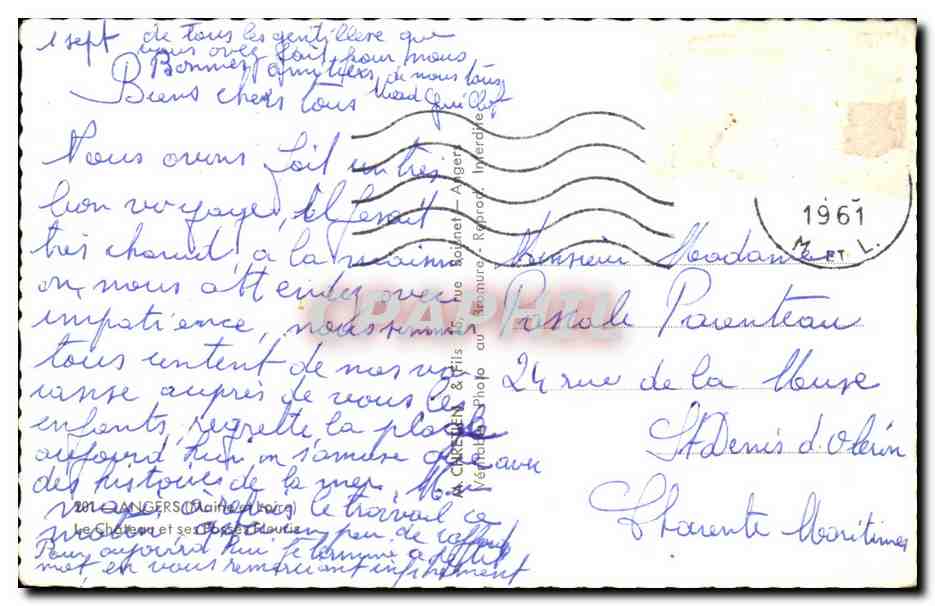 1 sept
Biens chers tous
Nous avons fait un très
bon voyage, il fesait
très chaud, à la maison
on nous attendez avec
impatience, nous sommes
tous content de nos va
canse auprès de vous les
enfants, regrette la plage
aujourd'hui on s'amuse avec
des histoires de la mer,
le travail ce
un peu de
Pour aujourd'hui je termine ce petit
mot en vous remerciant infiniment
de tous les gentillese que
vous avez fait pour nous
Bonnes amitiées de nous tous
201 - ANGERS (Maine et Loire)
Le Château et ses Fossés Fleuris
A. CHRETIEN & Fils - 15, rue Boisnet - Angers
Véritable Photo au Bromure - Reprod. Interdite
1961
M. ET L.
CPAPHIL
Monsieur Madame
Pascale Parenteau
24 rue de la Meuse
St Denis d'Oléron
Charente Maritimes